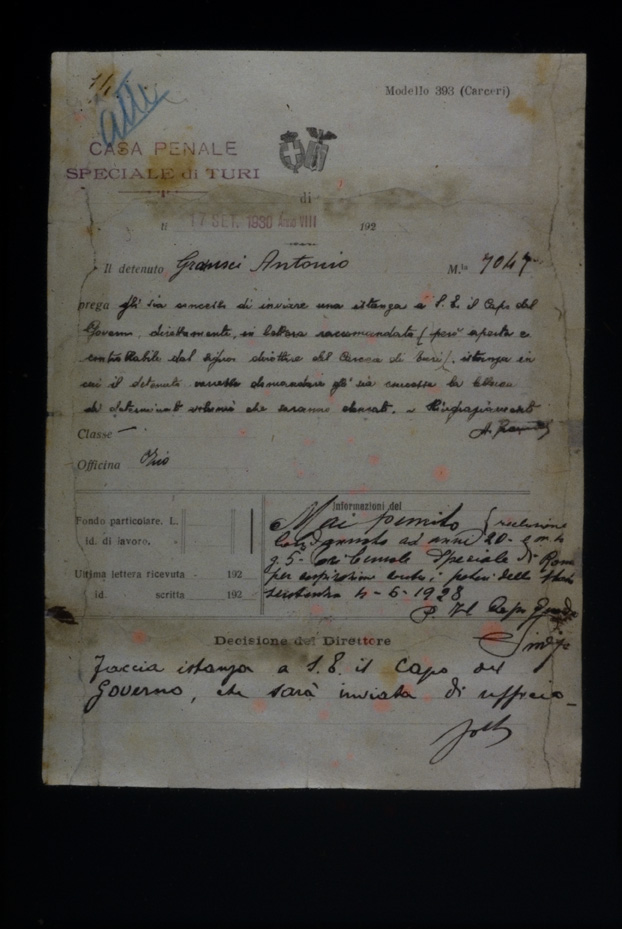 atti
Modello 393 (Carceri)
CASA PENALE
SPECIALE di TURI
di
li 17 SET. 1930 Anno VIII 192
Il detenuto Gramsci Antonio M.la 7047
prega gli sia concesso di inviare una istanza a S. E. il Capo del
Governo, direttamente, in lettera raccomandata (però aperta e
controllabile dal signor direttore del Carcere di Turi), istanza in
cui il detenuto vorrebbe domandare gli sia concessa la lettura
di determinati volumi che saranno elencati. Ringraziamenti
Classe —
A. Gramsci
Officina Ozio
Informazioni del
Mai punito (reclusione
Fondo particolare. L.
Condannato ad anni 20 - e m. 4
id. di lavoro. »
g. 5 - Tribunale Speciale di Roma
Ultima lettera ricevuta - 192
per cospirazione contro i poteri dello Stato
id. scritta - 192
sentenza 4-6-1928
p. Il Capo Guardia
Decisione del Direttore
Faccia istanza a S. E. il Capo del
Governo, che sarà inviata di ufficio -